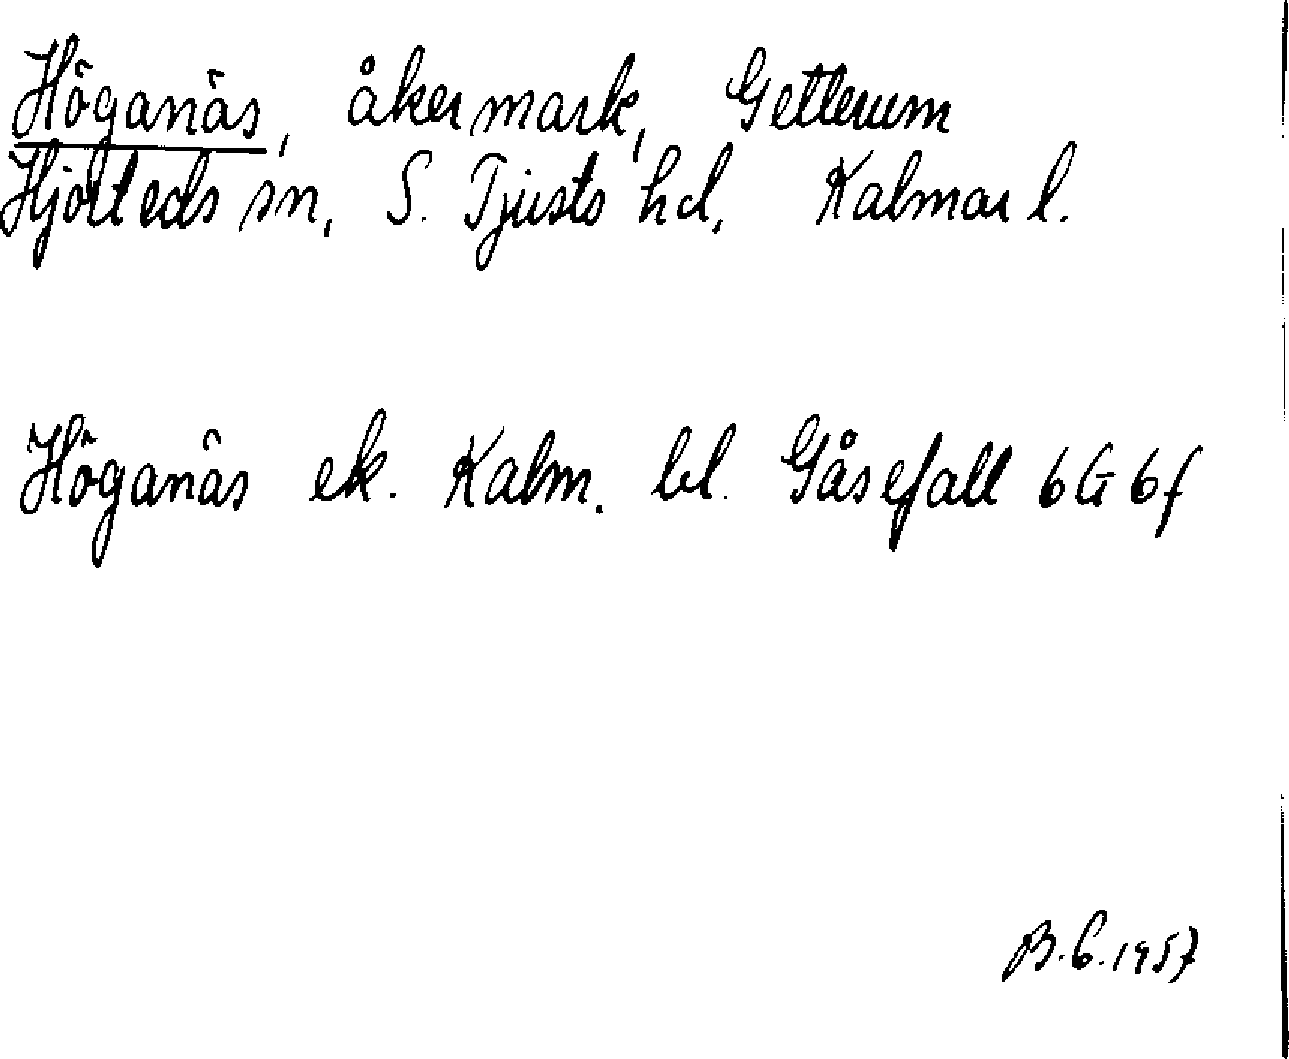 Höganäs, åkermark, Getterum
Hjorteds sn, S. Tjusts hd, Kalmar l.
Höganäs ek. Kalm. bl. Gåsefall 6G 6f
B.G. 1957